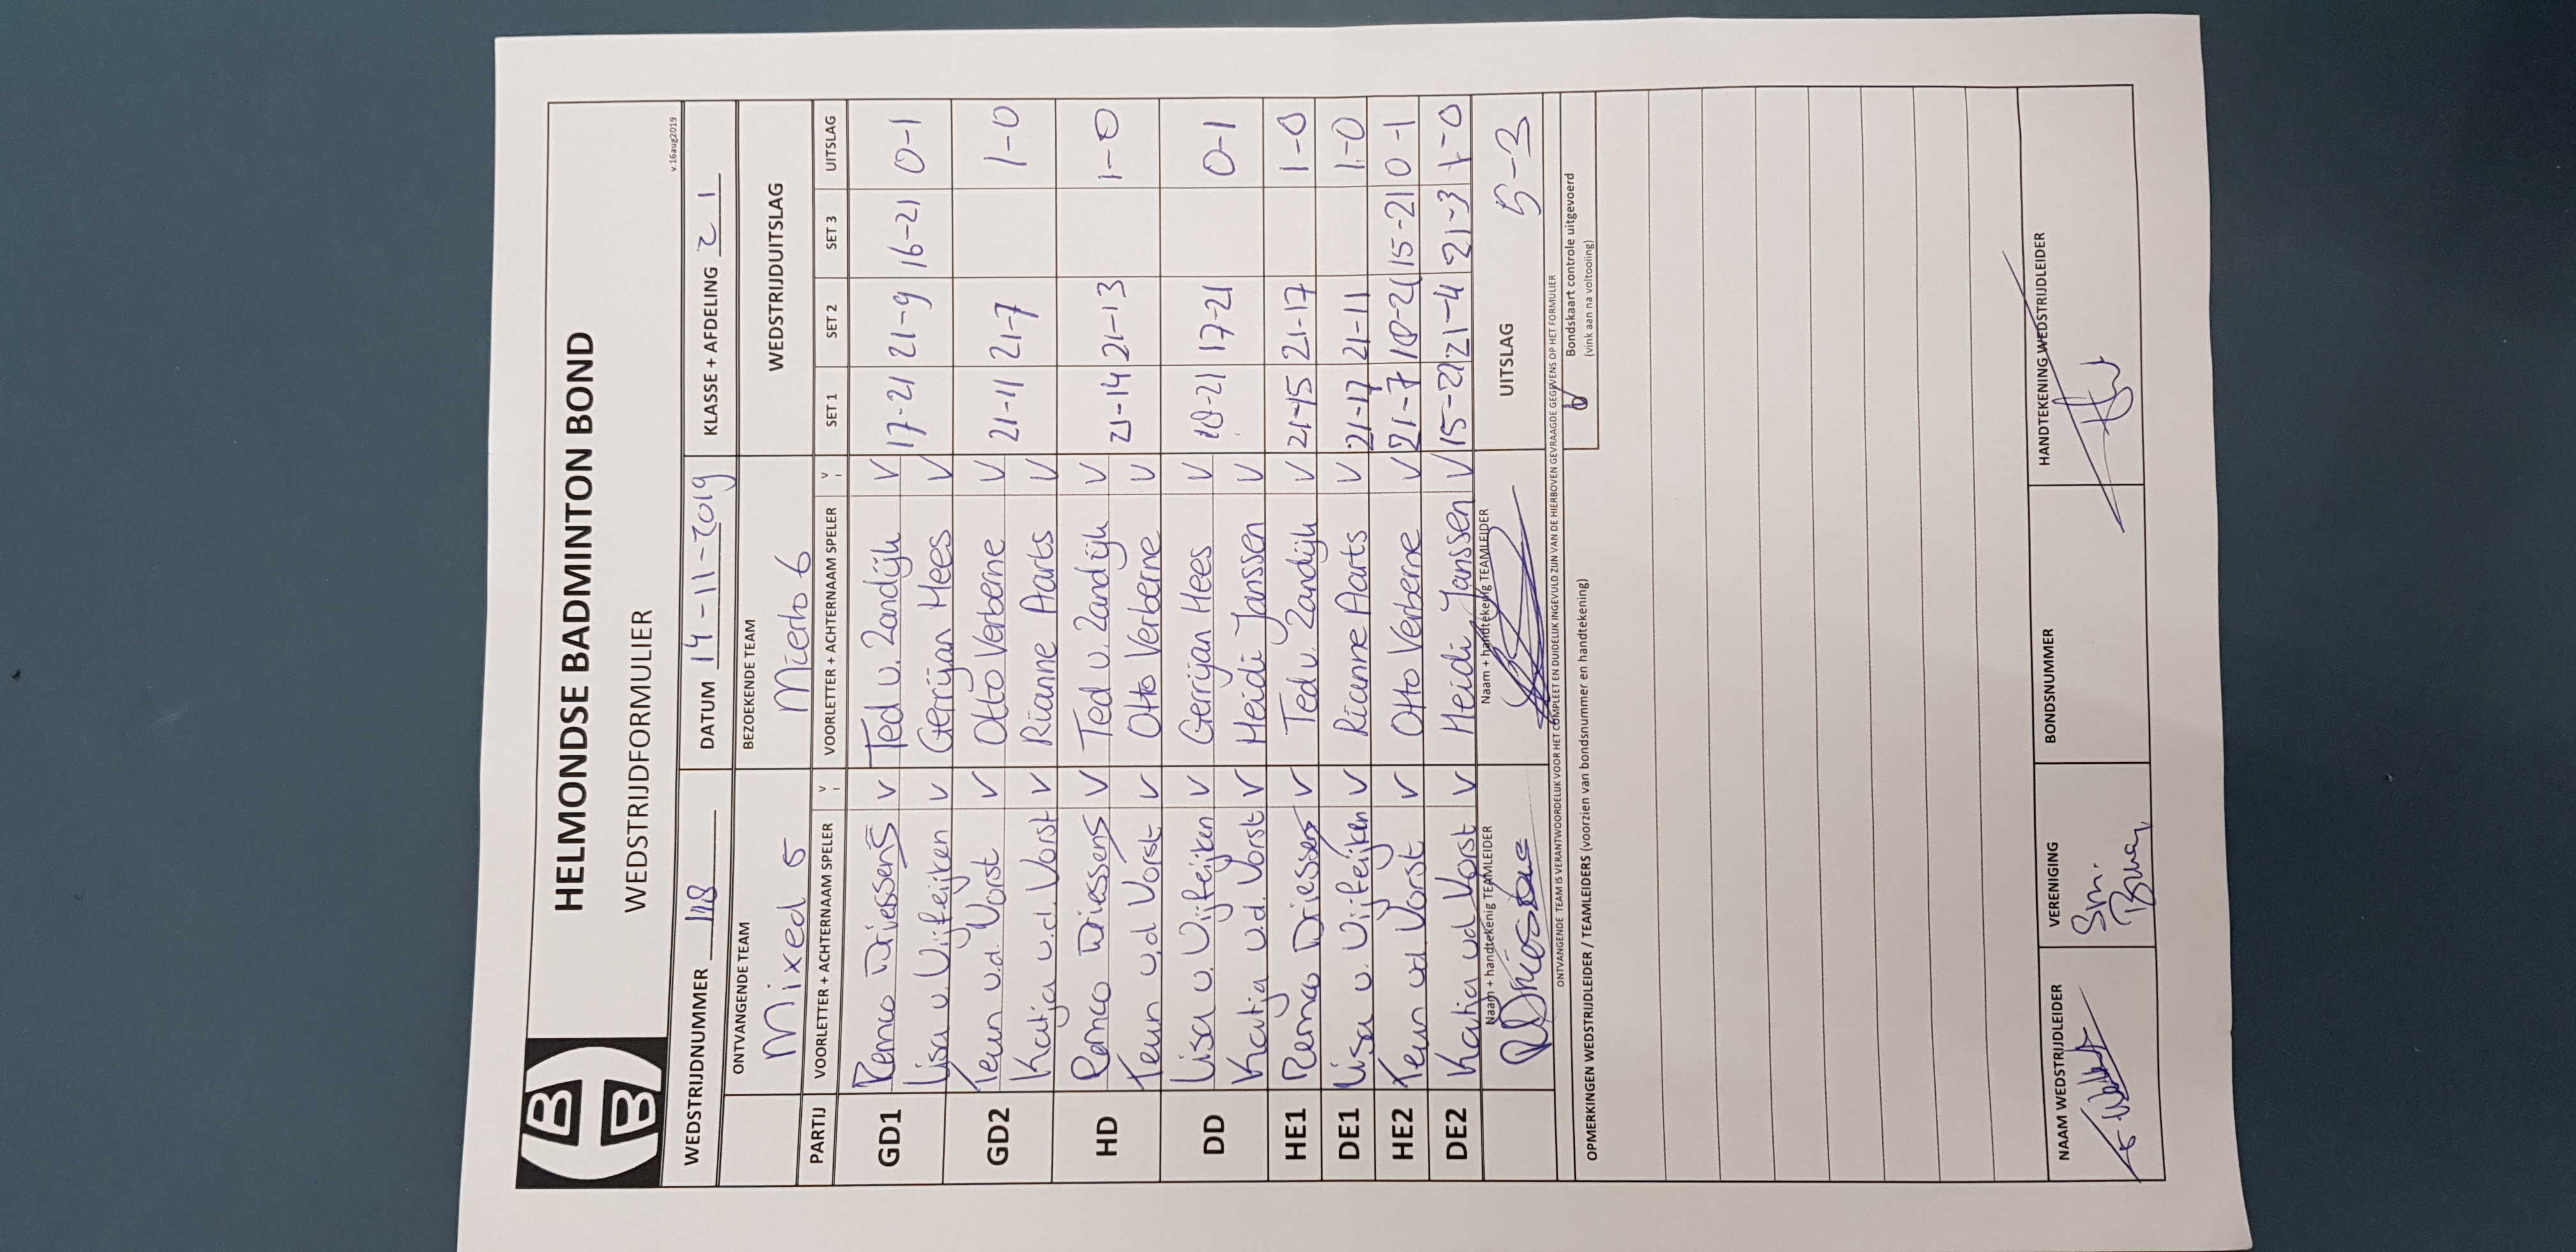 HELMONDSE BADMINTON BOND
WEDSTRIJDFORMULIER
v.16aug2019
WEDSTRIJDNUMMER 118 DATUM 14-11-2019 KLASSE + AFDELING 2 1
ONTVANGENDE TEAM BEZOEKENDE TEAM WEDSTRIJDUITSLAG
Mixed 5 Mierlo 6
PARTIJ VOORLETTER + ACHTERNAAM SPELER V VOORLETTER + ACHTERNAAM SPELER V SET 1 SET 2 SET 3 UITSLAG
GD1 Remco Driessens V Ted v. Zandijk V 17-21 21-9 16-21 0-1
Lisa v. Vijfeijken V Gerrijan Hees V
GD2 Teun v.d. Vorst V Otto Verberne V 21-11 21-7 1-0
Katja v.d. Vorst V Rianne Aarts V
HD Remco Driessens V Ted v. Zandijk V 21-14 21-13 1-0
Teun v.d Vorst V Otto Verberne V
DD Lisa v. Vijfeijken V Gerrijan Hees V 18-21 17-21 0-1
Katja v.d. Vorst V Heidi Janssen V
HE1 Remco Driessens V Ted v. Zandijk V 21-15 21-17 1-0
DE1 Lisa v. Vijfeijken V Rianne Aarts V 21-17 21-11 1-0
HE2 Teun vd Vorst V Otto Verberne V 21-7 18-21 15-21 0-1
DE2 Katja vd Vorst V Heidi Janssen V 15-21 21-4 21-3 1-0
Naam + handtekenig TEAMLEIDER Naam + handtekenig TEAMLEIDER UITSLAG 5-3
ONTVANGENDE TEAM IS VERANTWOORDELIJK VOOR HET COMPLEET EN DUIDELIJK INGEVULD ZIJN VAN DE HIERBOVEN GEVRAAGDE GEGEVENS OP HET FORMULIER
Bondskaart controle uitgevoerd
(vink aan na voltooiing)
OPMERKINGEN WEDSTRIJDLEIDER / TEAMLEIDERS (voorzien van bondsnummer en handtekening)
NAAM WEDSTRIJDLEIDER VERENIGING BONDSNUMMER HANDTEKENING WEDSTRIJDLEIDER